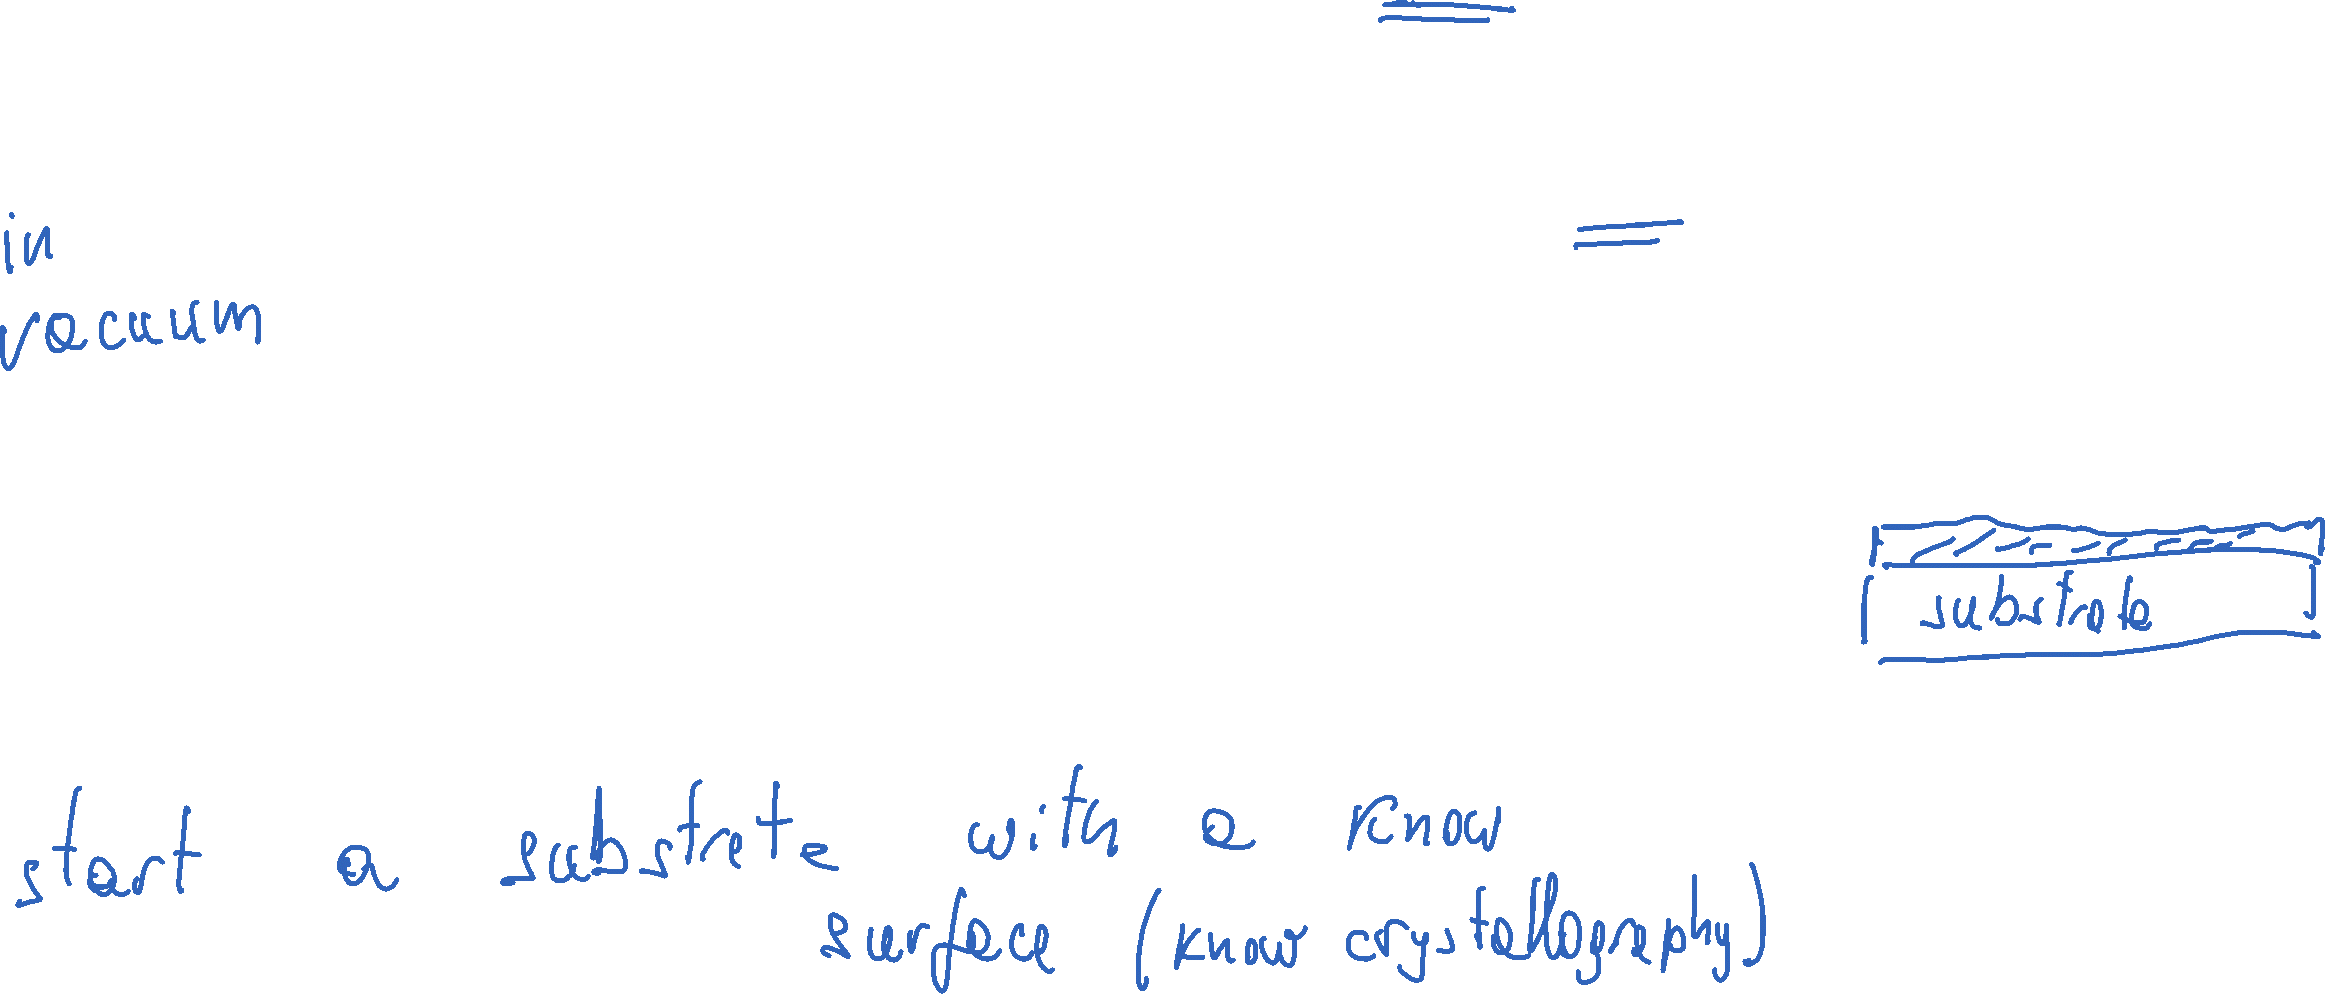 in
vacuum
substrate
start a substrate with a know
surface (know crystallography)